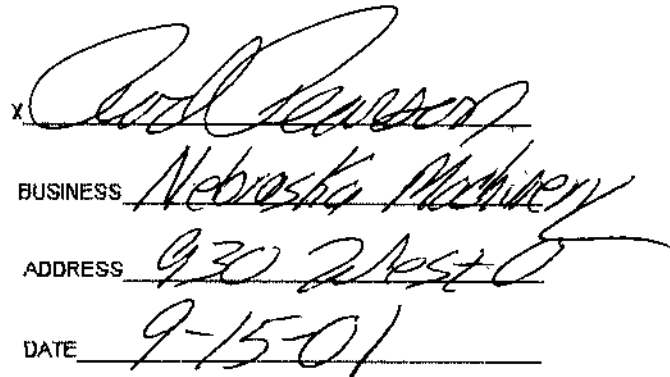 X Rod Pearson
BUSINESS Nebraska Machinery
ADDRESS 930 West O
DATE 9-15-01